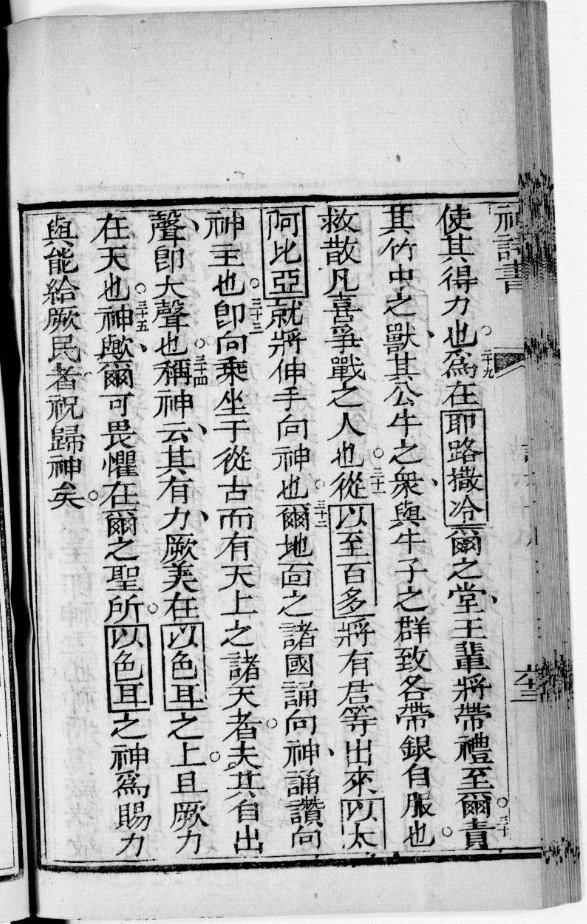 神詩書
使其得力也。二十九為在耶路撒冷爾之堂、王輩將帶禮至爾。三十責
其竹中之獸、其公牛之衆、與牛子之群、致各帶銀自服也。
救散凡喜爭戰之人也。三十一從以至百多將有君等出來、以太
阿比亞就將伸手向神也。三十二爾地面之諸國誦向神、誦讚向
神主也。三十三即向乘坐于從古而有天上之諸天者。夫其自出
聲、即大聲也。三十四稱神云、其有力、厥美在以色耳之上。且厥力
在天也。三十五神歟、爾可畏懼在爾之聖所。以色耳之神為賜力
與能給厥民者、祝歸神矣。